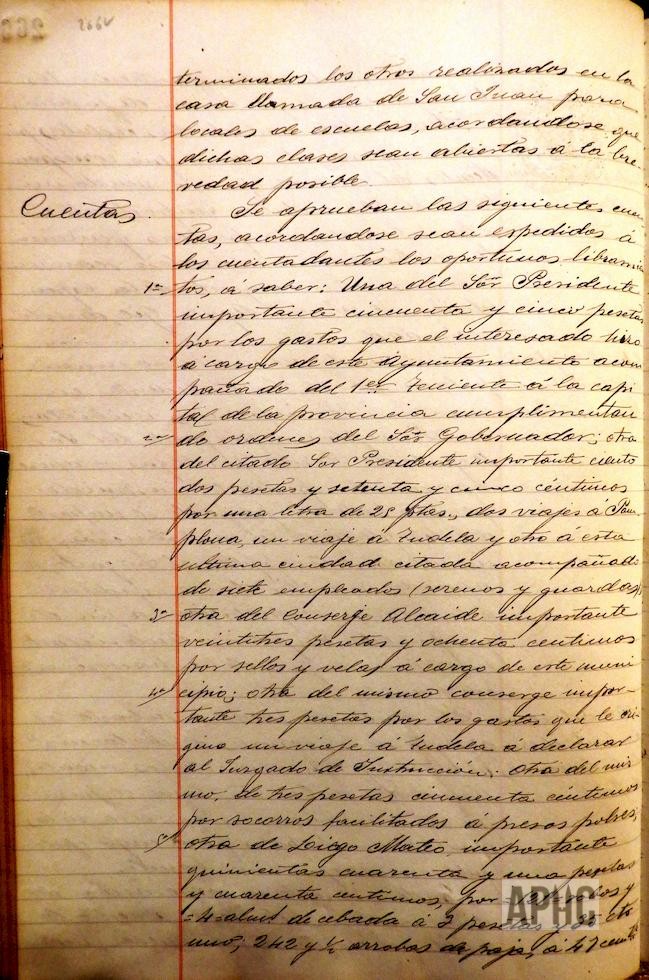 266v
terminados los otros realizados en la
casa llamada de San Juan para
locales de escuelas, acordandose que
dichas clases sean abiertas á la bre-
vedad posible.
Cuentas
Se aprueban las siguientes cuen-
tas, acordandose sean expedidos á
los cuentadantes los oportunos libramien
1ª tos, á saber: Una del Sor Presidente
importante cincuenta y cinco pesetas
por los gastos que el interesado hizo
á cargo de este Ayuntamiento acom
pañado del 1er Teniente á la capi
tal de la provincia cumplimentan
2ª do ordenes del Sor Gobernador; otra
del citado Sor Presidente importante ciento
dos pesetas y setenta y cinco céntimos
por una letra de 25 ptas., dos viajes á Pam
plona, un viaje á Tudela y otro á esta
ultima ciudad citada acompañado
de siete empleados (serenos y guardas)
3ª otra del Conserje Alcaide importante
veintitres pesetas y ochenta centimos
por sellos y velas á cargo de este muni
4ª cipio; otra del mismo conserge impor-
tante tres pesetas por los gastos que le ori-
gino un viaje á Tudela á declarar
al Juzgado de Instrucción: Otra del mis
mo, de tres pesetas cincuenta céntimos
por socorros facilitados á presos pobres;
5ª otra de Diego Mateo importante
quinientas cuarenta y una pesetas
y cuarenta centimos, por robos y
=4=almd de cebada á 3 pesetas y cto
uno; 242 y ½ arrobas de paja, á 47 centi
APHC